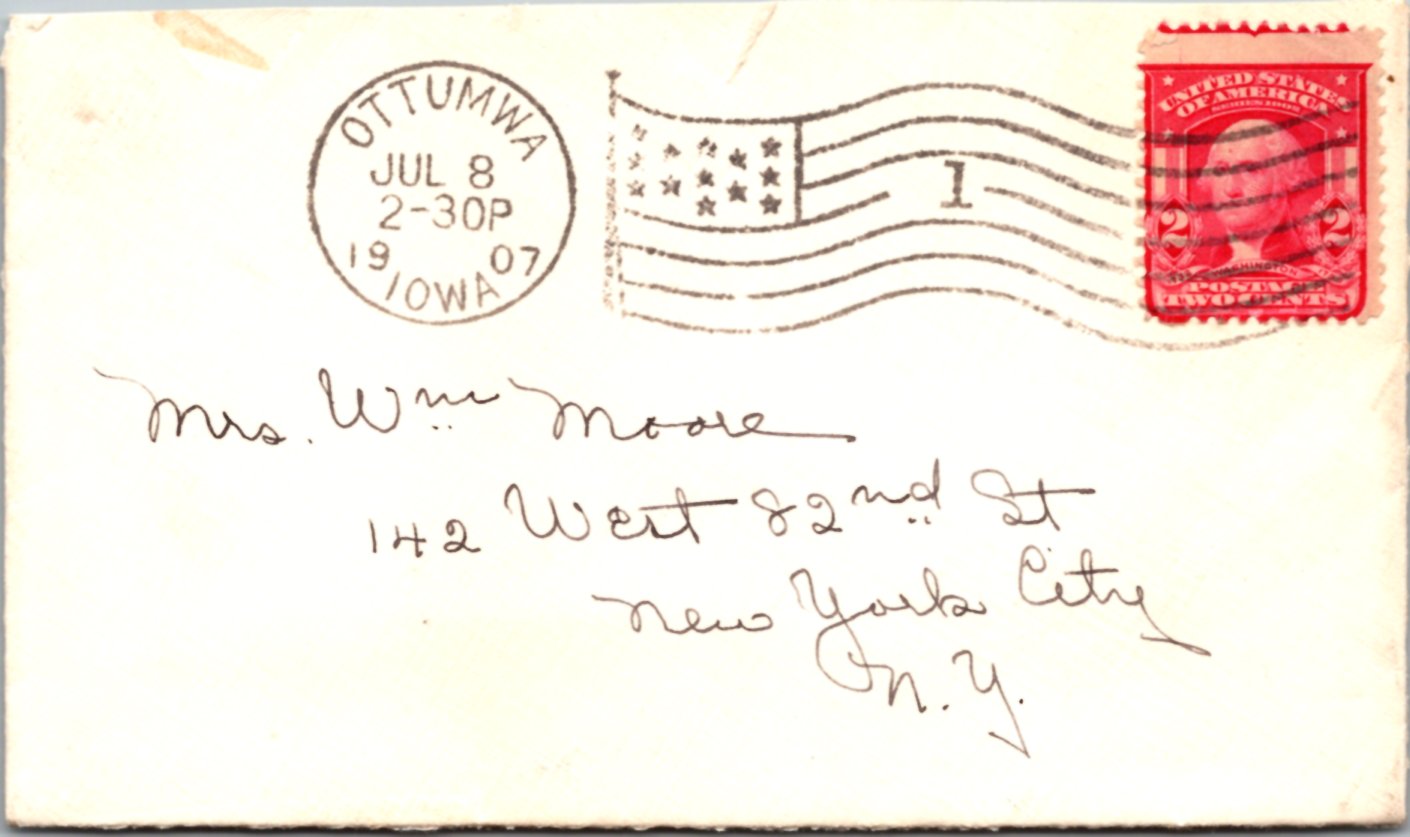 OTTUMWA
JUL 8
2-30P
19 07
IOWA
1
UNITED STATES
OF AMERICA
SERIES 1902
2 2
WASHINGTON
POSTAGE
TWO CENTS
Mrs. Wm Moore
142 West 82nd St
New York City
N.Y.